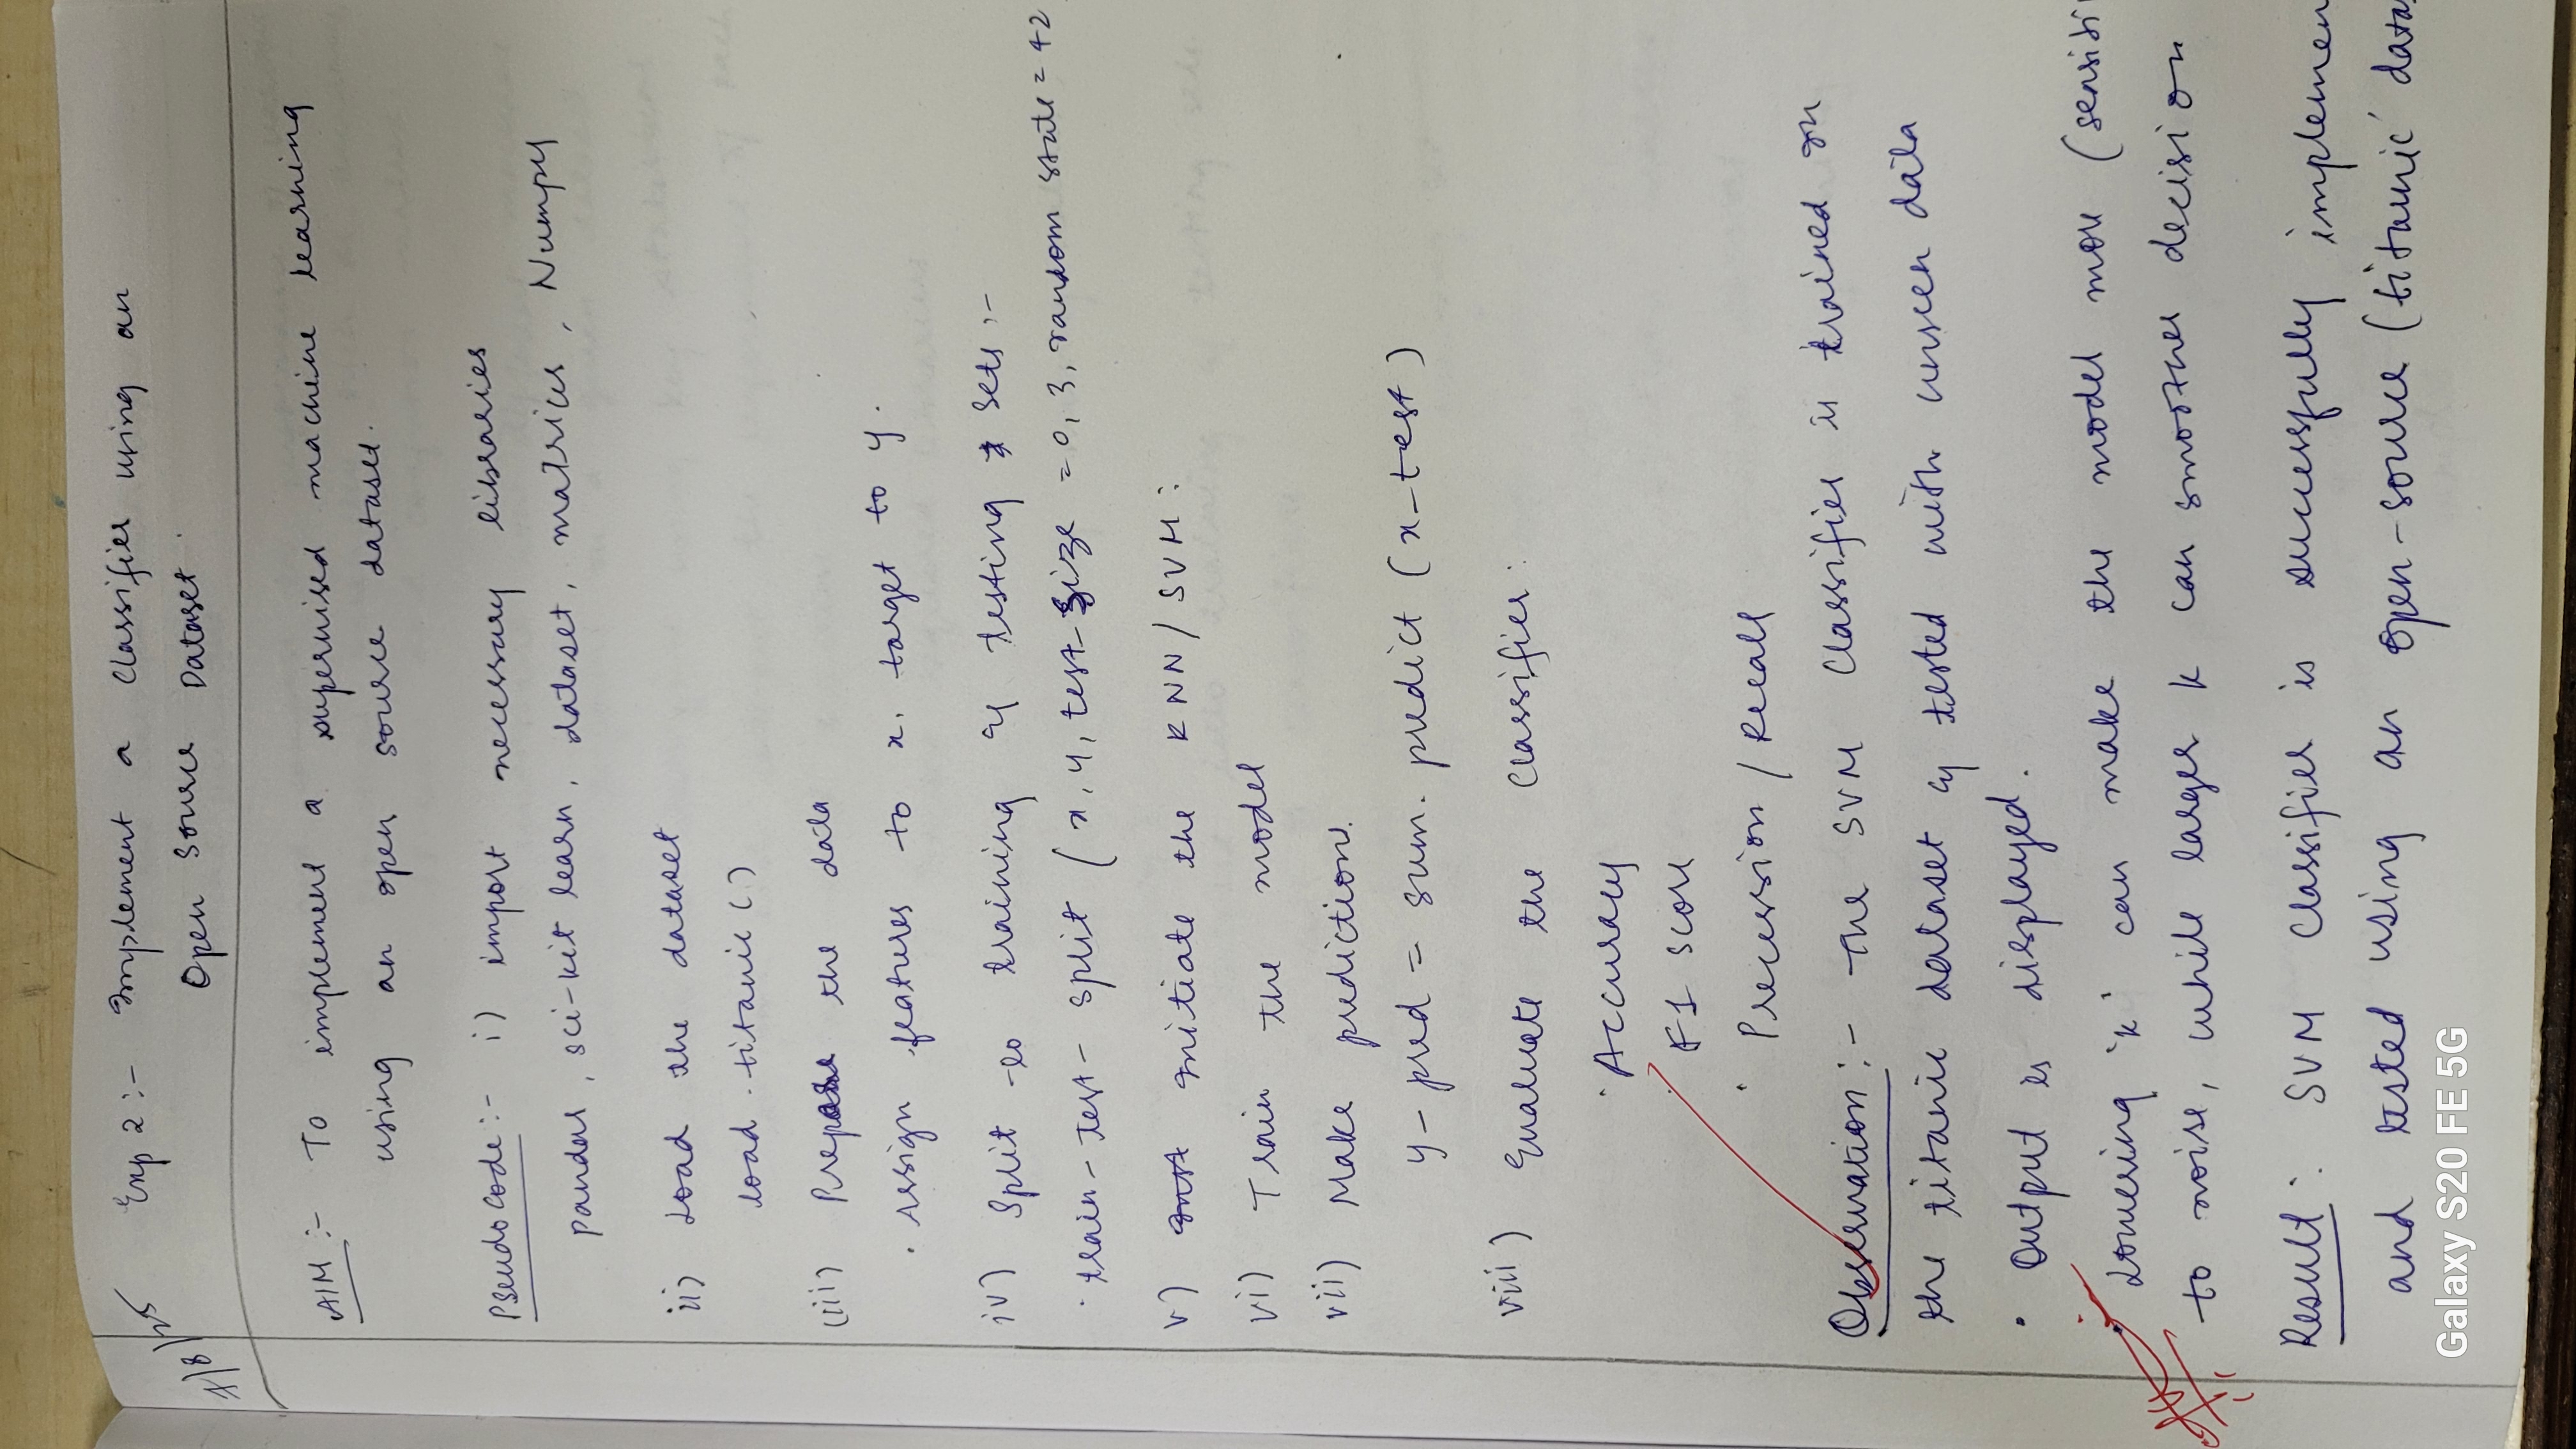 7/8/25
Exp 2:- Implement a Classifier using an
Open Source Dataset.
AIM:- To implement a supervised machine learning
using an open source dataset.
Pseudocode:- i) import necessary libraries
pandas, sci-kit learn, dataset, matrices, Numpy
ii) Load the dataset
load.titanic()
(iii) Prepare the data
. Assign features to x, target to y.
iv) Split to training & testing sets:-
. train-test-split (x, y, test-size = 0,3, random state = 42
v) Initiate the KNN/SVM:
vi) Train the model
vii) Make predictions.
y-pred = svm.predict (x-test)
viii) Evaluate the Classifier:
. Accuracy
. F1 score
. Precession / Recall
Observation:- The SVM Classifier is trained on
the titanic dataset & tested with unseen data
. Output is displayed.
. Lowering 'k' can make the model more (sensiti
to noise, while larger k can smoother decision
Result: SVM Classifier is successfully implemen
and tested using an open-source (titanic datas
Galaxy S20 FE 5G